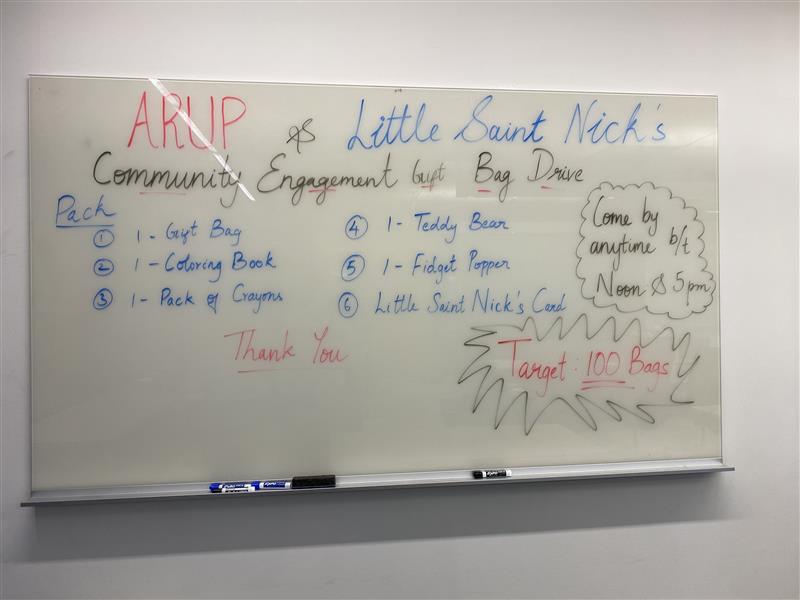 ARUP & Little Saint Nick's
Community Engagement Gift Bag Drive
Pack
① 1 - Gift Bag
② 1 - Coloring Book
③ 1 - Pack of Crayons
④ 1 - Teddy Bear
⑤ 1 - Fidget Popper
⑥ Little Saint Nick's Card
Come by
anytime b/t
Noon & 5 pm
Thank You
Target: 100 Bags